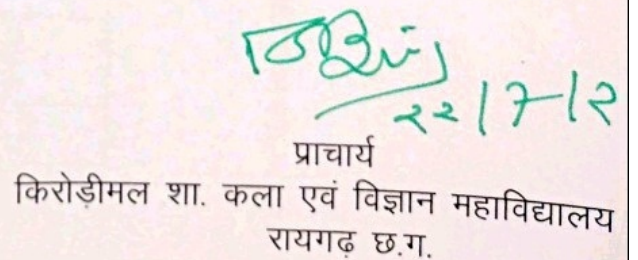 २२/7/२
प्राचार्य
किरोड़ीमल शा. कला एवं विज्ञान महाविद्यालय
रायगढ़ छ.ग.